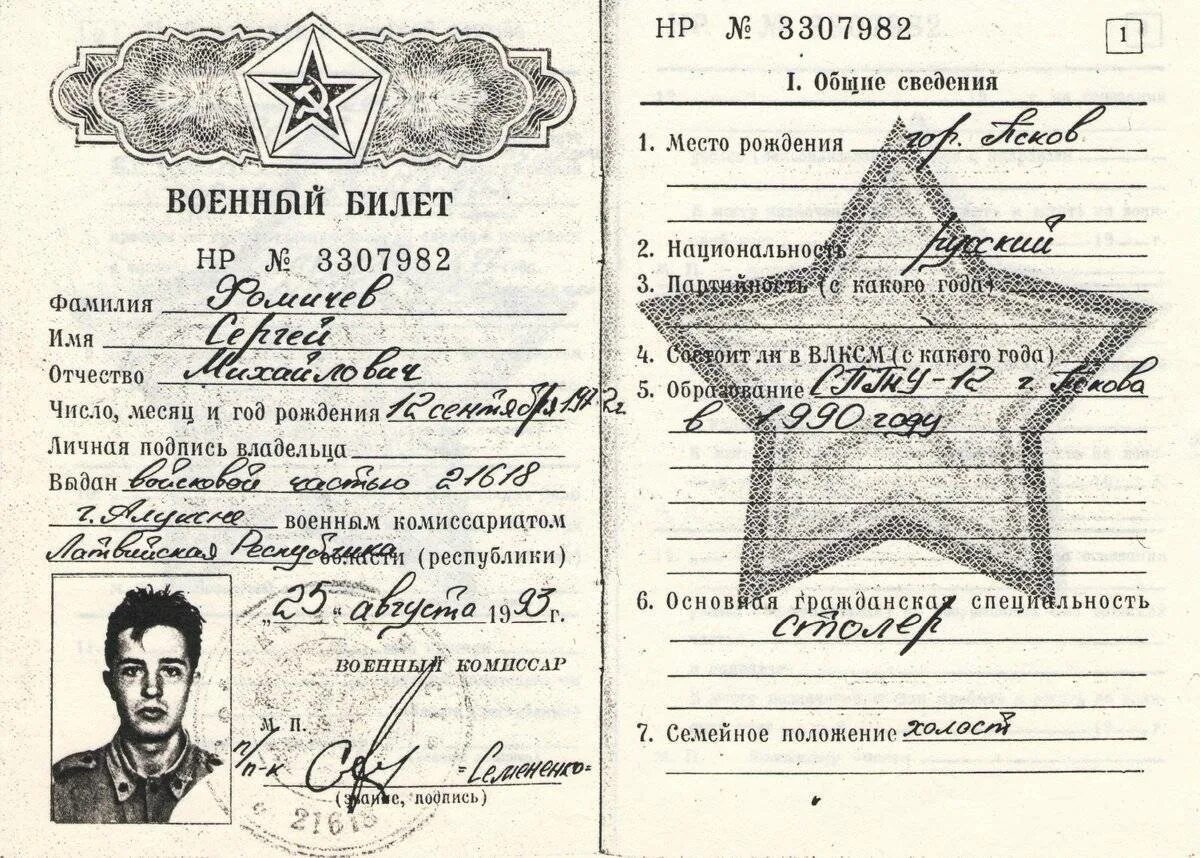 ВОЕННЫЙ БИЛЕТ
НР № 3307982
Фамилия Фомичев
Имя Сергей
Отчество Михайлович
Число, месяц и год рождения 12 сентября 1972 г
Личная подпись владельца
Выдан войсковой частью 21618
г. Алуксне военным комиссариатом
Латвийская Республика области (республики)
„25" августа 1993 г.
ВОЕННЫЙ КОМИССАР
М. П.
п/п-к =Семененко=
(звание, подпись)
21618
НР № 3307982
1
I. Общие сведения
1. Место рождения гор. Псков
2. Национальность русский
3. Партийность (с какого года)
4. Состоит ли в ВЛКСМ (с какого года)
5. Образование СПТПУ-12 г. Пскова
в 1990 году
6. Основная гражданская специальность
столер
7. Семейное положение холост